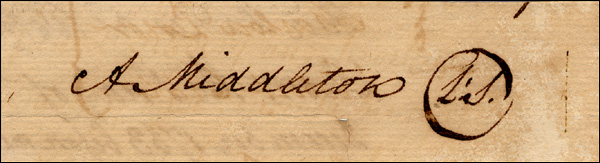 A Middleton L.S.